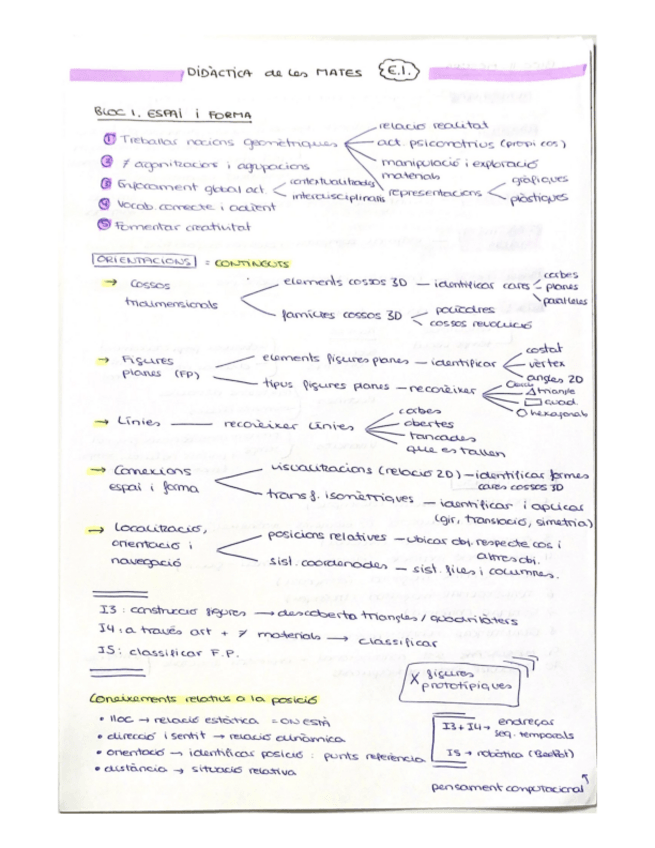 DIDÀCTICA de les MATES E.I.
BLOC 1. ESPAI i FORMA
① Treballar nocions geomètriques
relació realitat
act. psicomotrius (propi cos)
manipulació i exploració materials
representacions
gràfiques
plàstiques
② ≠ agonitzacions i agrupacions
③ Enfocament global act.
contextualitzades
interdisciplinaris
④ Vocab. correcte i adient
⑤ Fomentar creativitat
ORIENTACIONS = CONTINGUTS
→ Cossos tridimensionals
elements cossos 3D — identificar cares
corbes
planes
paral·leles
famílies cossos 3D
políedres
cossos revolució
→ Figures planes (FP)
elements figures planes — identificar
costat
vèrtex
angles 2D
tipus figures planes — reconèixer
Cercle
△ triangle
▭ quad.
hexagonals
→ Línies — reconèixer línies
corbes
obertes
tancades
que es tallen
→ Conexions espai i forma
visualitzacions (relació 2D) — identificar formes cares cossos 3D
transf. isomètriques — identificar i aplicar
(gir, translació, simetria)
→ Localització, orientació i navegació
posicions relatives — ubicar obj. respecte cos i altres obj.
sist. coordenades — sist. files i columnes.
I3: construcció figures → descoberta triangles / quadrilàters
I4: a través art + ≠ materials → classificar
I5: classificar F.P.
X figures prototípiques
Coneixements relatius a la posició
• lloc → relació estàtica = ON ESTÀ
• direcció i sentit → relació dinàmica
• orientació → identificar posició: punts referència
• distància → situació relativa
I3 + I4 → endreçar seq. temporals
I5 → robòtica (BeeBot)
pensament computacional